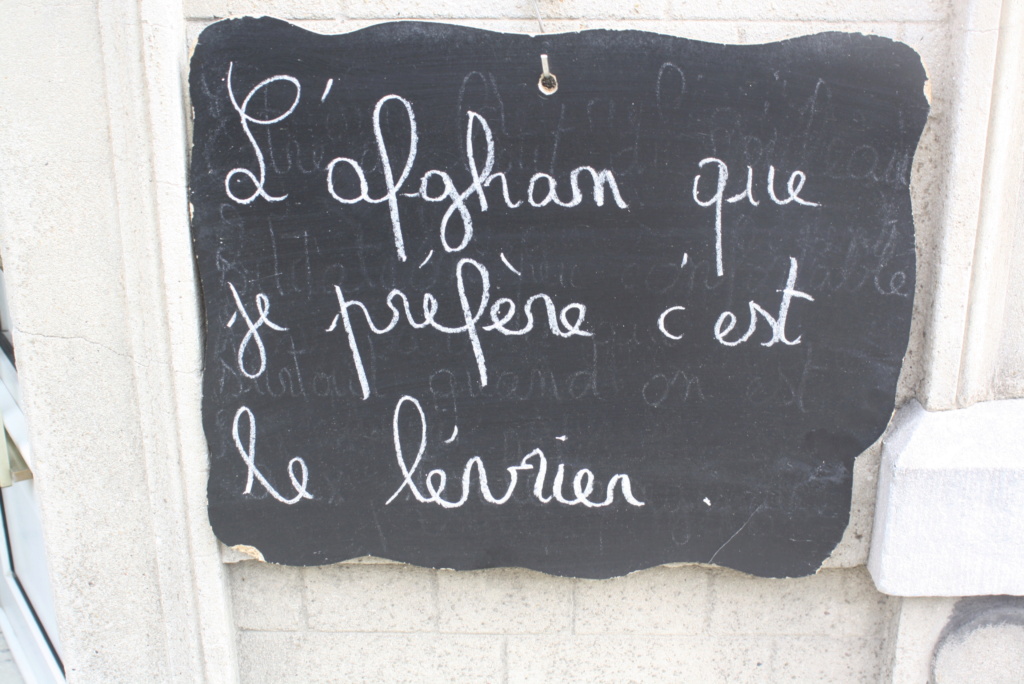 L'afghan que
je préfère c'est
le lévrier.